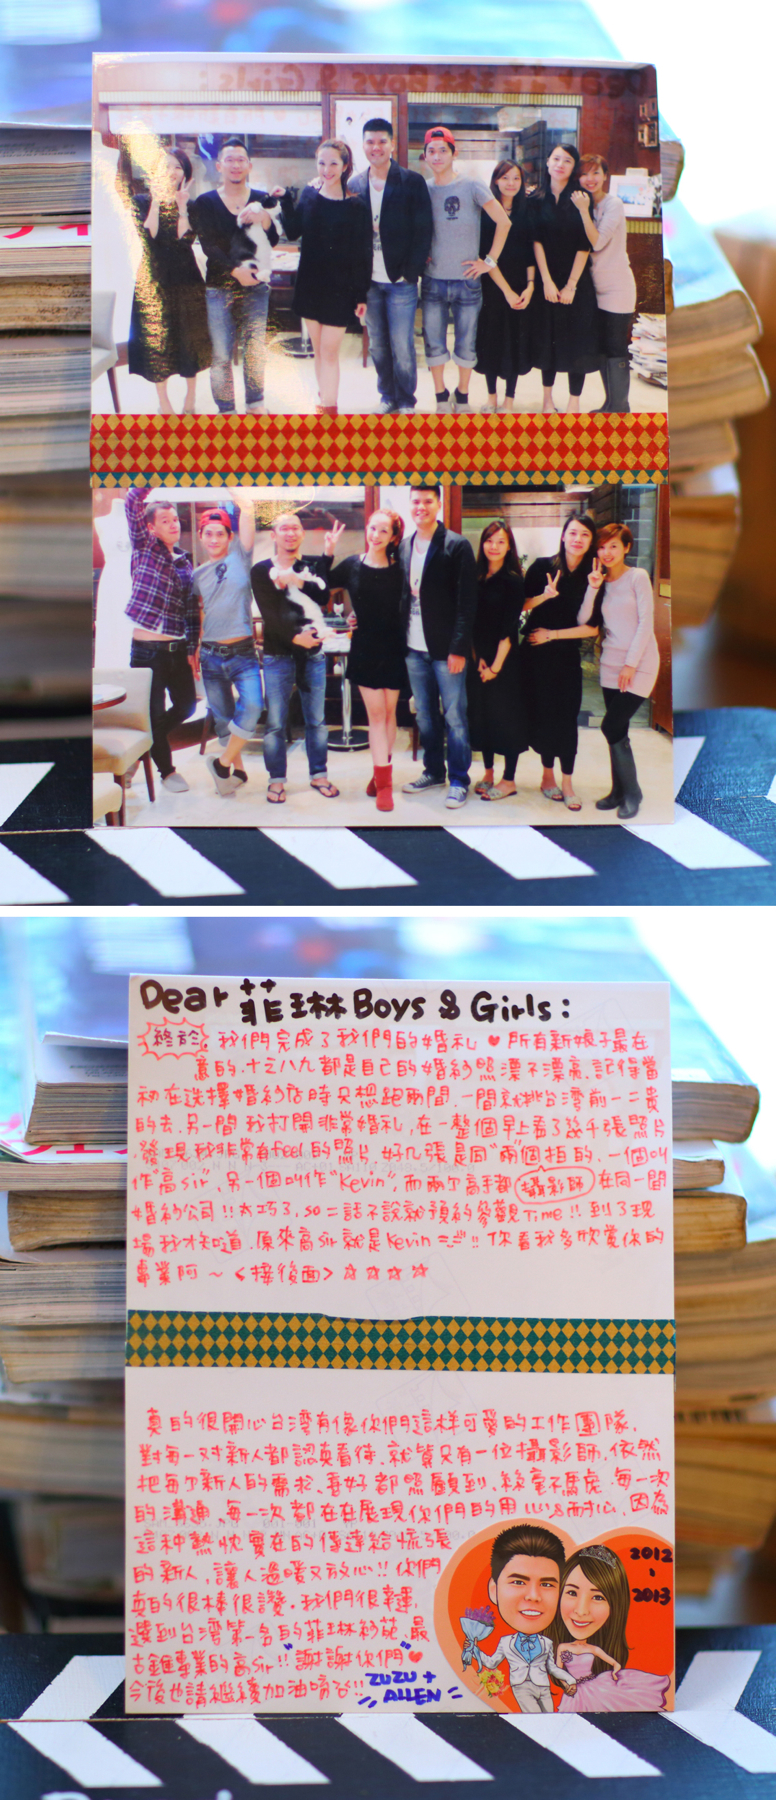 Dear 菲琳 Boys & Girls:
終於 我們完成了我們的婚礼 ♥ 所有新娘子最在
意的.十之八九都是自己的婚紗照漂不漂亮.記得當
初在選擇婚紗店時只想跑兩間.一間就排台湾前一二貴
的去.另一間我打開非常婚礼,在一整個早上看了幾千張照片
.發現我非常有feel的照片,好几張是同"兩"個拍的.一個叫
作"高sir",另一個叫作"Kevin",而兩个高手都 攝影師 在同一間
婚紗公司!!太巧了,so二話不說就預約參觀Time!!到了現
場我才知道.原來高sir就是Kevin !!你看我多欣賞你的
專業阿~<接後面>☆☆☆☆
真的很開心台湾有像你們這樣可愛的工作團隊,
對每一对新人都認真看待.就算只有一位攝影師.依然
把每个新人的需求、喜好都照顧到、絲毫不馬虎.每一次
的溝通.每一次都在在展現你們的用心&耐心.因為
這种熱忱實在的傳達給慌張
的新人,讓人溫暖又放心!!你們
真的很棒很讚.我們很幸運,
選到台湾第一名的菲琳紗苑.最
古錐專業的高Sir!!"謝謝你們"♥
今後也請繼續加油唷!!
ZUZU +
ALLEN
2012
2013